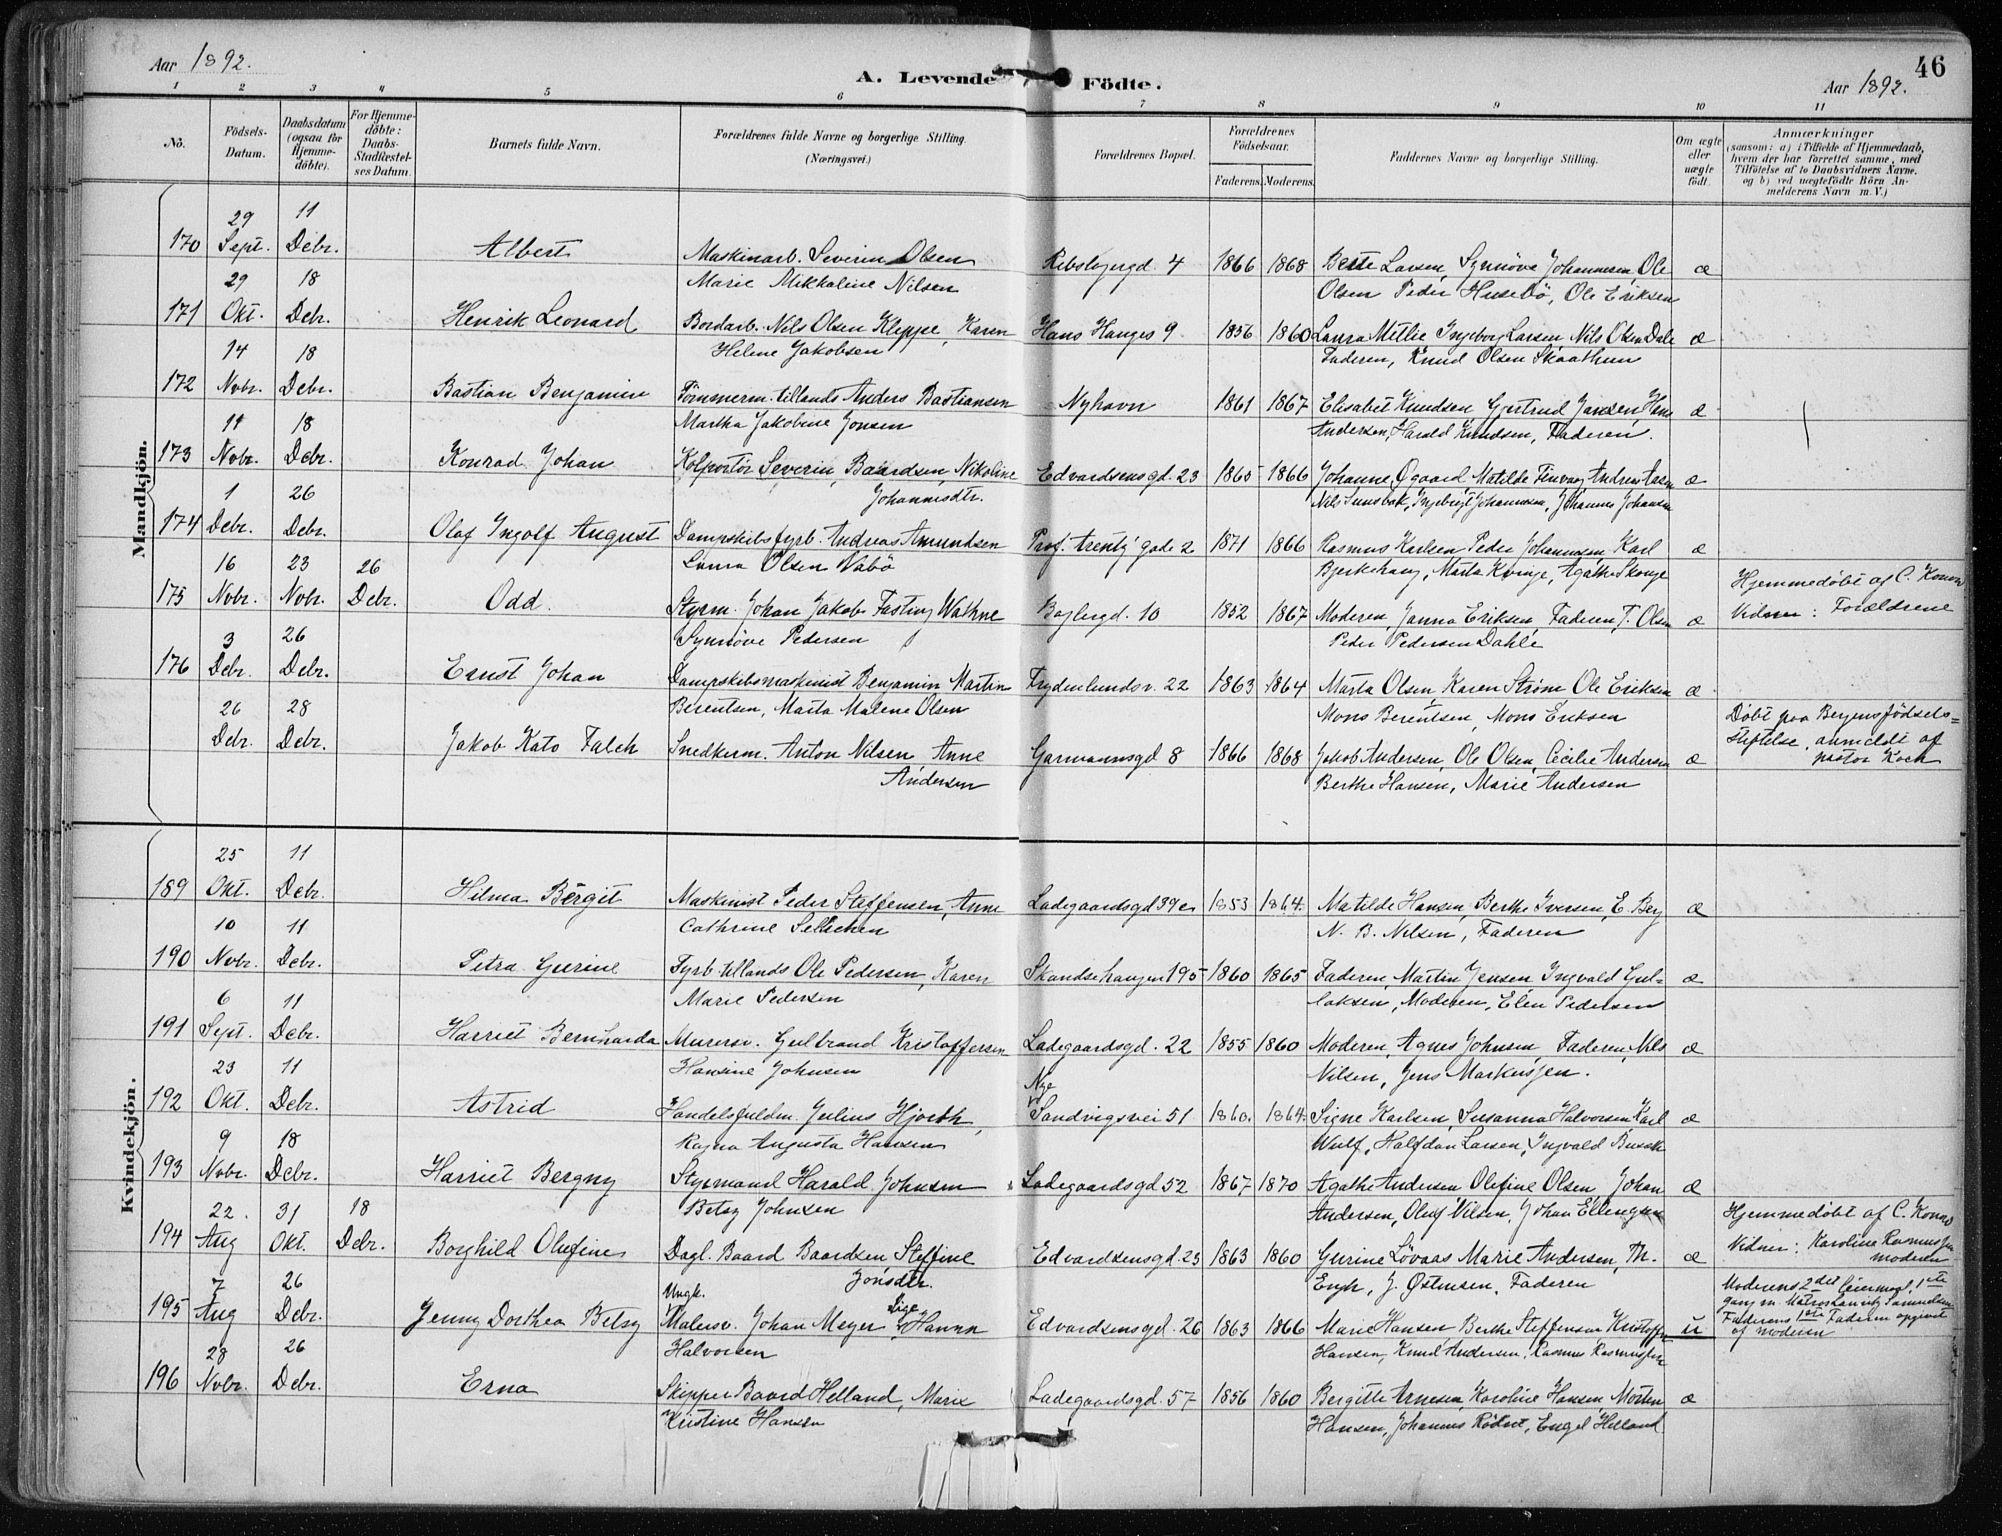 46
Aar 1892.
A. Levende Födte.
Aar 1892.
1 2 3 4 5 6 7 8 9 10 11
No.
Födsels-Datum.
Daabsdatum (ogsaa for Hjemmedöbte).
For Hjemmedöbte: Daabs-Stadfæstelses Datum.
Barnets fulde Navn.
Forældrenes fulde Navne og borgerlige Stilling. (Næringsvei.)
Forældrenes Bopæl.
Forældrenes Födselsaar.
Faderens. Moderens.
Faddernes Navne og borgerlige Stilling.
Om ægte eller uægte födt.
Anmærkninger
(saasom: a) i Tilfælde af Hjemmedaab, hvem der har forrettet samme, med Tilföielse af to Daabsvidners Navne. og b) ved uægtefödte Börn Anmelderens Navn m. V.)
Mandkjön.
170 29 Sept. 11 Debr. Albert Maskinarb. Severin Olsen Ribsbjergd. 4 1866 1868 Larsen, Synnöve Johannesen, Ole æ
Marie Mikkaline Nilsen Olsen Peder Husebö, Ole Eriksen
171 29 Okt. 18 Debr. Henrik Leonard Bordarb. Nils Olsen Kleppe, Karen Hans Hauges 9 1856 1860 Laura Ingeborg Larsen, Nils Olsen Dale æ
Helene Jakobsen Faderen, Knud Olsen Skaathun
172 14 Nobr. 18 Debr. Bastian Benjamin Tömmerm. tillands Anders Bastiansen Nyhavn 1861 1867 Elisabet Knudsen, Gjertrud Jansen, Hans æ
Martha Jakobine Jonsen Andersen, Harald Knudsen, Faderen.
173 11 Nobr. 18 Debr. Konrad Johan Kolportör Severin Baardsen, Nikoline Edvardsensgd. 23 1865 1866 Johanne Øgaard Matilde æ
Johannesdtr. Nils Johannes Johansen
174 1 Debr. 26 Debr. Olaf Ingolf August Dampskibsfyrb. Andreas Amundsen gade 2 1871 1866 Rasmus Karlsen Peder Johannesen, Karl æ
Laura Olsen Vabö Marta Kvinge, Agathe Skonge
175 16 Nobr. 23 Nobr. 26 Debr. Odd. Styrm. Johan Jakob Fasting Wathne Baglergd. 10 1852 1867 Moderen, Janna Eriksen, Faderen, T. Olsen æ Hjemmedöbt af C. Konow
Synnöve Pedersen Peder Pedersen Dahle Vidner: Forældrene
176 3 Debr. 26 Debr. Ernst Johan Dampskibsmaskinist Benjamin Martin Frydenlundsv. 22 1863 1864 Marta Olsen Karen Ström Ole Eriksen æ
Berentsen, Marta Malene Olsen Mons Berentsen, Mons Eriksen
26 Debr. 28 Debr. Jakob Kato Falch Snedkerm. Anton Nilsen Anne Garmannsgd 8 1866 1868 Jakob Andersen, Ole Olsen, Cecilie Andersen æ Döbt paa Bergens födsels=
Andersen Berthe Hansen, Marie Andersen stiftelse, anmeldt af
pastor Koch
Kvindekjön.
189 25 Okt. 11 Debr. Hilma Bergit Maskinist Peder Steffensen, Anne Ladegaardsgd 39 1853 1864. Matilde Hansen, Berthe Iversen, E. Berg æ
Cathrine N. B. Nilsen, Faderen
190 10 Nobr. 11 Debr. Petra Gurine Fyrb. tillands Ole Pedersen, Karen 195 1860 1865 Faderen, Martin Jensen, Ingvald Gul-
Marie Pedersen laksen, Moderen, Elen Pedersen æ
191 6 Sept. 11 Debr. Harriet Bernharda Murersv. Gulbrand Kristoffersen Ladegaardsgd. 22 1855 1860 Moderen, Agnes Johnsen Faderen, Nils æ
Hansine Johnsen Nilsen, Jens Markussen.
192 23 Okt. 11 Debr. Astrid Handelsfuldm. Julius Hjorth, Nye Sandvigsvei 51 1860. 1864. Signe Karlsen, Susanna Halvorsen Karl æ
Ragna Augusta Hansen Wulf, Halfdan Larsen, Ingvald
193 9 Nobr. 18 Debr. Harriet Bergny Styrmand Harald Johnsen Ladegaardsgd 52 1867 1870 Agathe Andersen Olefine Olsen Johan æ
Betsy Johnsen Andersen, Oluf Nilsen, Johan Ellengsen
194 22. Aug 31 Okt. 18 Debr. Borghild Olufine Dagl. Baard Baardsen Steffine Edvardsensgd. 23 1863 1860 Gurine Lövaas Marie Andersen, Th. æ Hjemmedöbt af C. Konow
Jonsdtr. Engh, J. Østensen, Faderen Vidner: Karoline Rasmussen
moderen
195 7 Aug 26 Debr. Jenny Dorthea Betsy Ungk. Malersv. Johan Meyer Pige Hanna Edvardsensgd. 26 1863 1866 Marie Hansen Berthe Steffensen Kristoffer u Moderens 2det leiermaal, 1ste
Halvorsen Hansen, Knud Andersen, Rasmus Rasmussen gang m. Matros Samuelsen
Faderens 1ste Faderen opgivet
af moderen
196 28 Nobr. 26 Debr. Erna Skipper Baard Helland, Marie Ladegaardsgd. 57 1856 1860 Bergitte Arnesen, Karoline Hansen, Morten æ
Kristine Hansen Hansen, Johannes Engel Helland